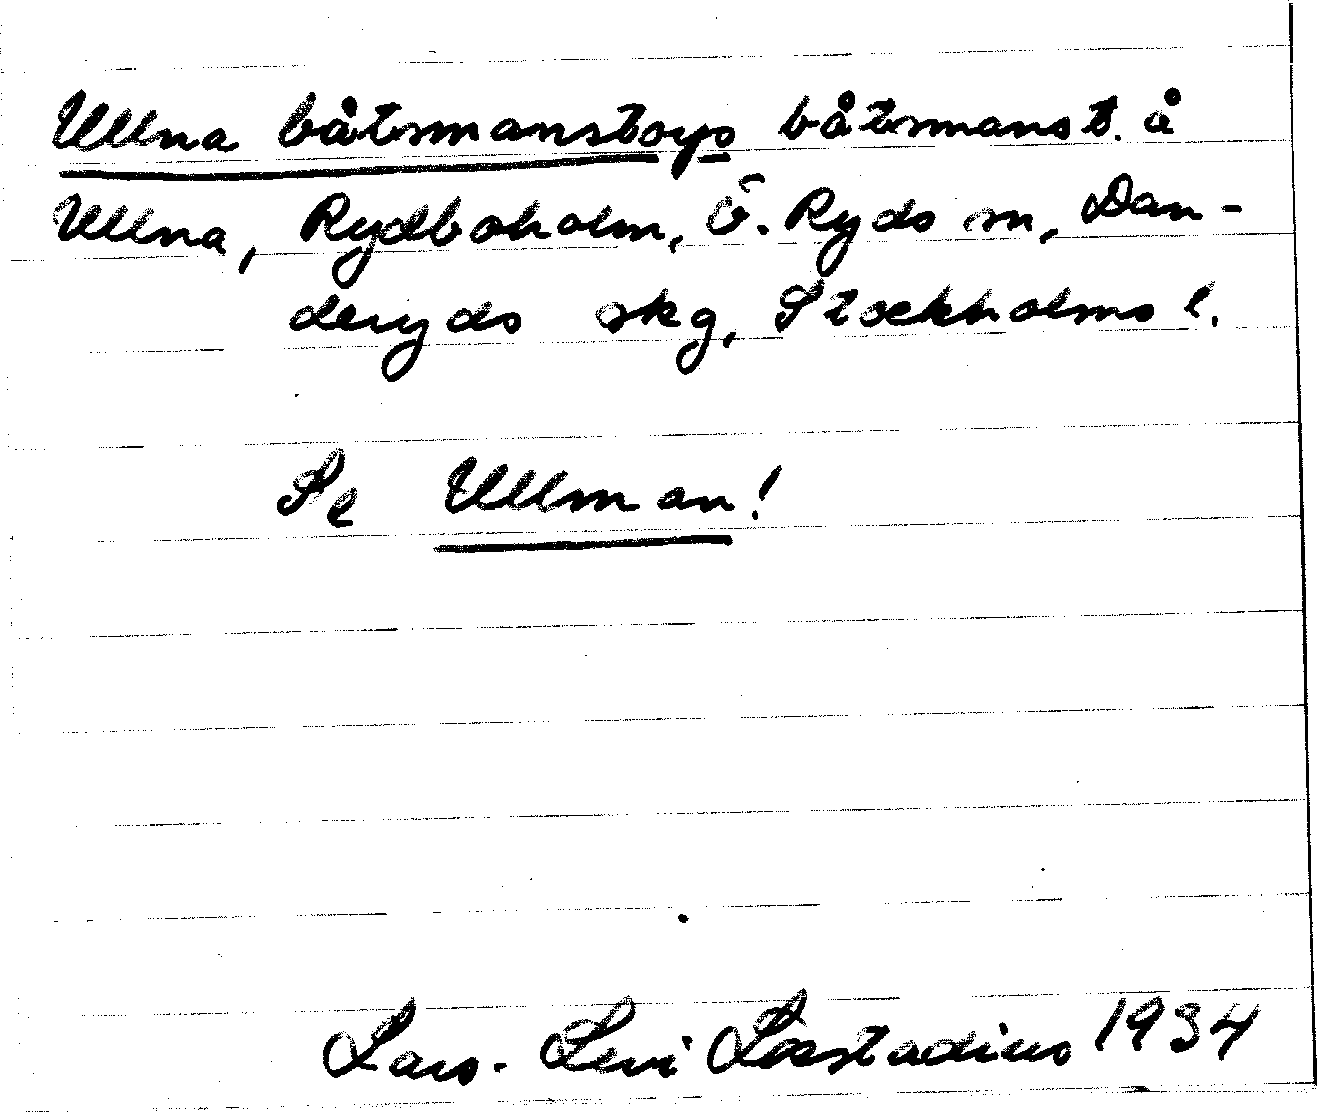 Ullna båtsmanstorp båtsmanst. å
Ullna, Rydboholm, Ö. Ryds sn, Dan-
deryds skg, Stockholms l.
Se Ullman!
Lars-Levi Læstadius 1934